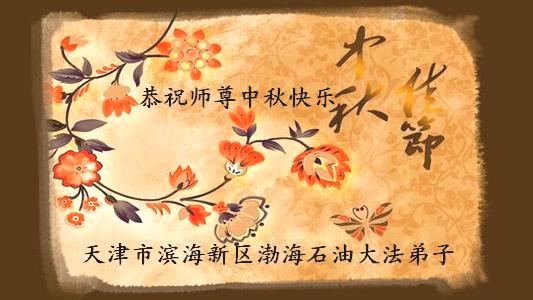 中秋
佳節
恭祝师尊中秋快乐
天津市滨海新区渤海石油大法弟子